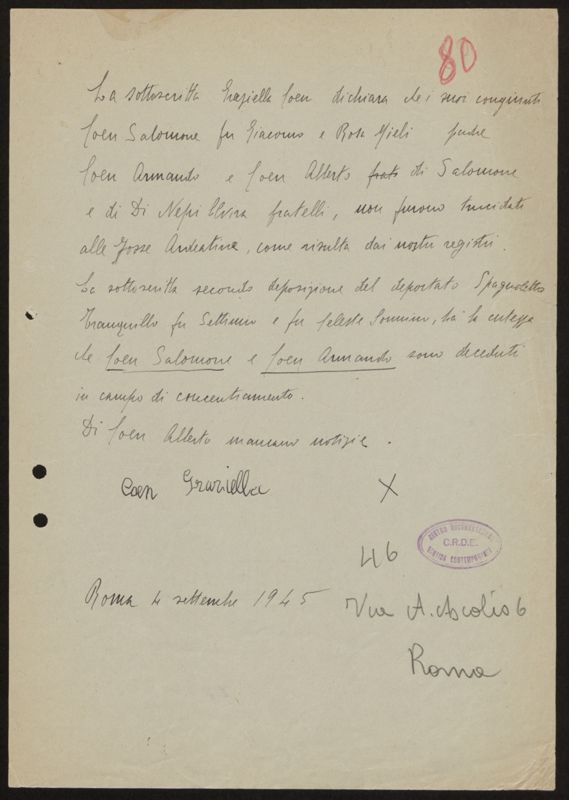 80
La sottoscritta Graziella Coen dichiara che i suoi congiunti
Coen Salomone fu Giacomo e Rosa Mieli padre
Coen Armando e Coen Alberto frate di Salomone
e di Di Nepi Elvira fratelli, non furono trucidati
alle Fosse Ardeatine, come risulta dai nostri registri.
La sottoscritta secondo deposizione del deportato Spagnoletto
Tranquillo fu Settimio e fu Celeste Sonnino, ha la certezza
che Coen Salomone e Coen Armando sono deceduti
in campo di concentramento.
Di Coen Alberto mancano notizie.
Coen Graziella X
46
CENTRO
C.R.D.E.
CONTEMPORANEA
Roma 4 settembre 1945
Via A. Ascoli 6
Roma